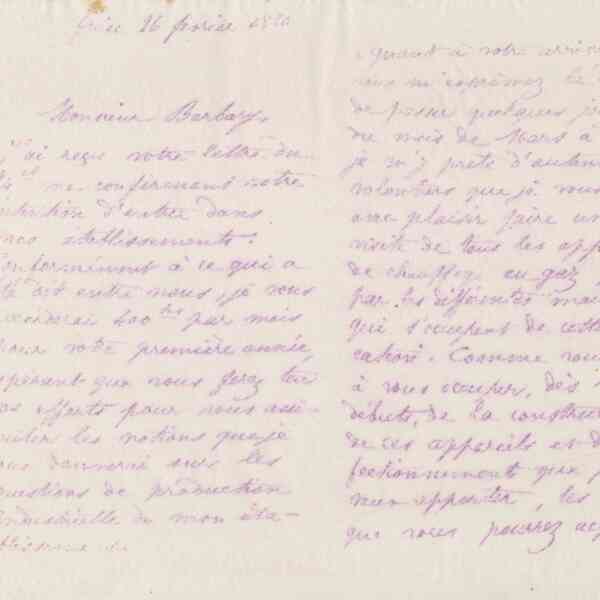 26 février
Monsieur Barbary,
J'ai reçu votre lettre du
me confirmant votre
intention d'entrer dans
mes établissements.
Conformément à ce qui a
été dit entre nous, je vous
accorderai 400 frs par mois
pour votre première année,
espérant que vous ferez tous
vos efforts pour vous assi-
miler les notions que je
vous donnerai sur les
questions de production
industrielle de mon éta-
blissement
Quant à votre arrivée
vous m'exprimez le
de passer quelques jo
du mois de Mars à
je m'y prête d'autant
volontiers que je vous
avec plaisir faire un
visite de tous les app
de chauffage au gaz
par les différentes mai
qui s'occupent de cette
cation. Comme vou
à vous occuper, dès
débuts, de la constru
de ces appareils et d
fectionnement que
 apporter, les
que vous pourrez acq